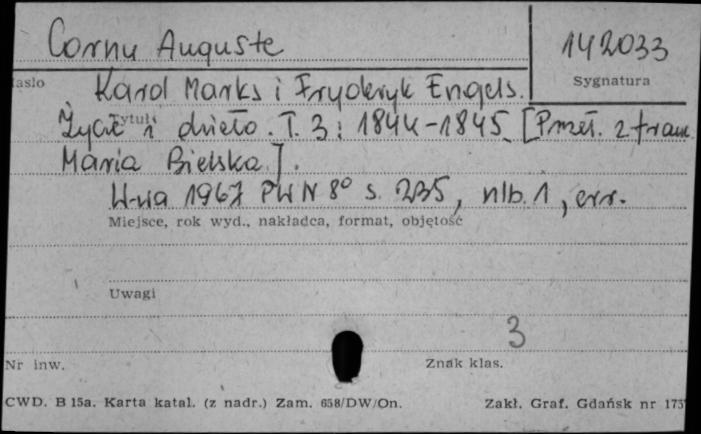 Cornu Auguste 142033
Hasło Sygnatura
Karol Marks i Fryderyk Engels.
Tytuł
Życie i dzieło. T. 3: 1844-1845 [Przeł. z franc
Maria Bielska].
W-wa 1967 PWN 8° s. 235, nlb. 1, err.
Miejsce, rok wyd., nakładca, format, objętość
Uwagi
3
Nr inw. Znak klas.
CWD. B 15a. Karta katal. (z nadr.) Zam. 658/DW/On. Zakł. Graf. Gdańsk nr 175